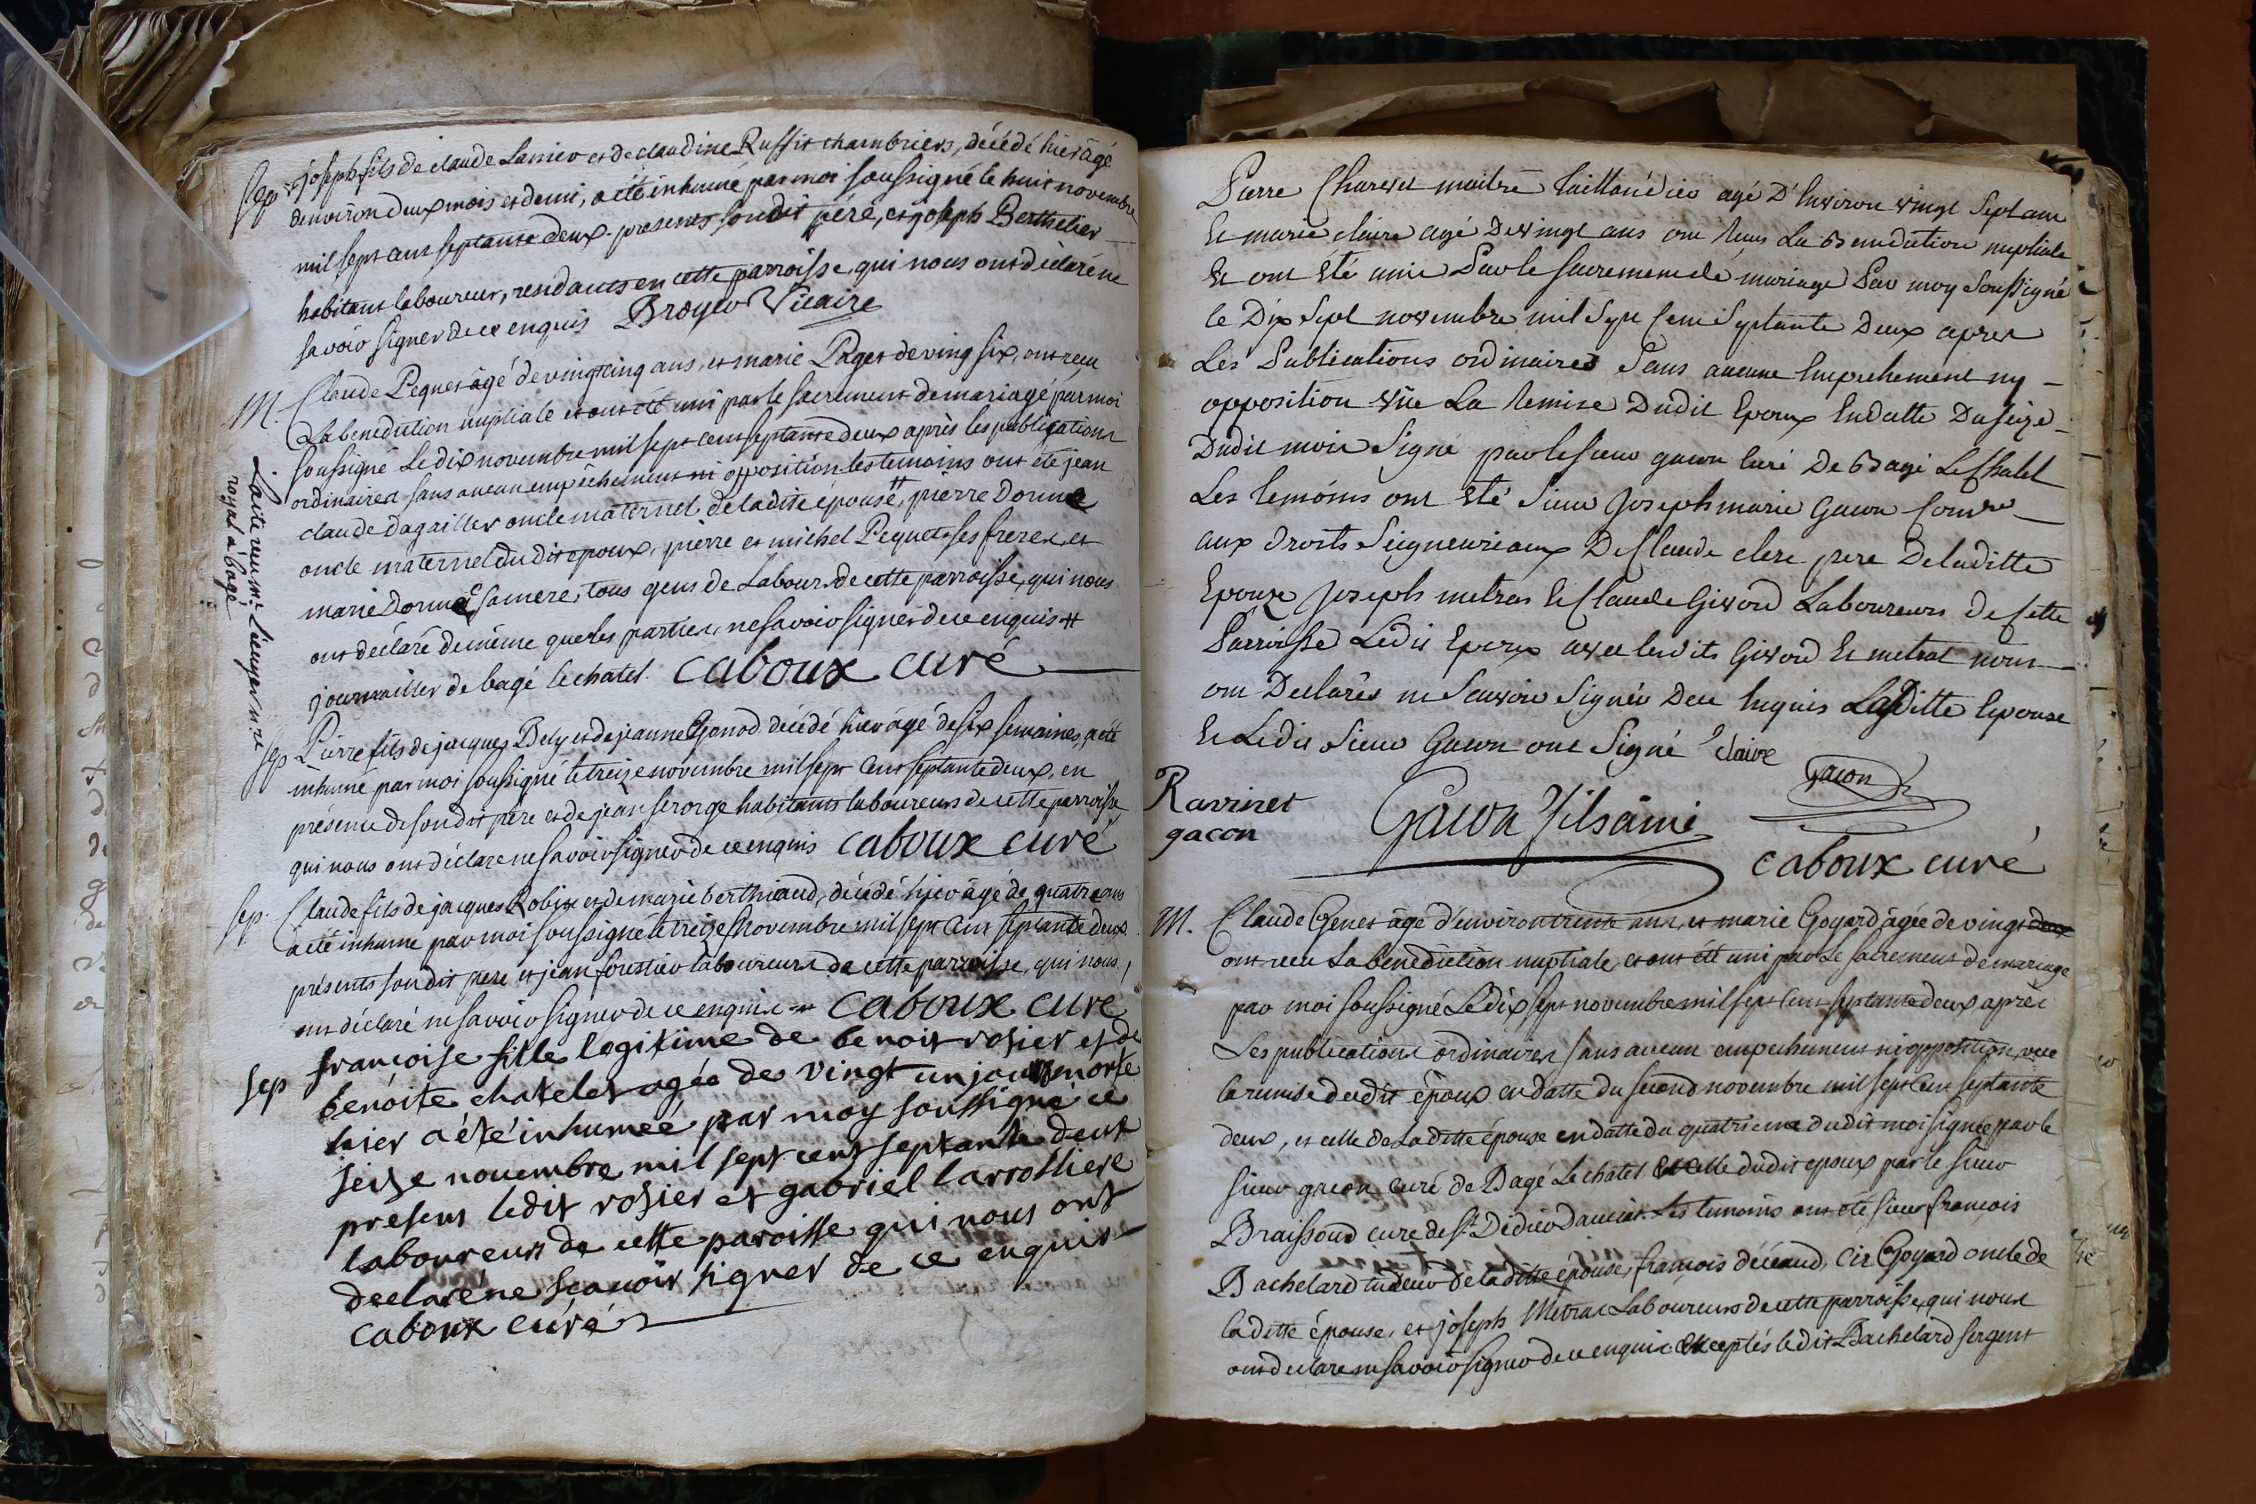 Sep joseph fils de claude Lanier et de claudine Ruffit chambriers, décédé hier âgé
denviron deux mois et demi, a été inhumé par moi soussigné le huit novembre
mil sept cent septante deux. presents son dit pére, et joseph Berthelier
habitans laboureur, residants en cette parroisse, qui nous ont déclaré ne
savoir signer de ce enquis Broyer Vicaire
M. Claude Pequet âgé de vingt cinq ans, et marie Pages de ving six, ont reçu
La benediction nuptiale et ont été uni par le sacrement de mariage par moi
soussigné Le dix novembre mil sept cent septante deux après les publications
ordinaires sans aucun empêchement ni opposition les temoins ont été jean
claude Dagallier oncle maternel de la dite épouse #, pierre Dorme
oncle maternel du dit epoux, pierre et michel Pequet ses freres, et
marie Dorme sa mere, tous gens de Labour de cette parroisse, qui nous
ont déclaré de même que les parties, ne savoir signer de ce enquis #
journallier de bagé le chatel. caboux curé
royal a bagé
Sep Pierre fils de jacques Bely et de jeanne Gonod décédé hier âgé de six semaines, a été
inhumé par moi soussigné le treize novembre mil sept cent septante deux, en
présence de son dit père et de jean ferorge habitants laboureurs de cette parroisse,
qui nous ont déclaré ne savoir signer de ce enquis caboux curé
sep. Claude fils de jacques Robin et de marie berthiaud, décédé hier âgé de quatre ans
a été inhumé par moi soussigné le treize novembre mil sept cent septante deux
présents son dit pere et jean forestier laboureurs de cette parroisse, qui nous
ont déclaré ne savoir signer de ce enquis caboux cure
Sep françoise fille legitime de benoit rosier et de
benoite chatelet agée de vingt un jour morte
hier a été inhumée par moy soussigné ce
seize novembre mil sept cent septante deux
presens ledit rosier et gabriel larrolliere
laboureurs de cette paroisse qui nous ont
declaré ne scavoir signer de ce enquis
caboux curé
Pierre Charvet maitre taillandier agé D'Environ vingt Sept ans
Et marie claire agé De vingt ans ont reçus La Benediction nuptiale
Et ont Eté unis Par le sacrement de mariage Par moy Soussigné
le Dix Sept novembre mil Sept Cent Septante Deux apres
Les Publications ordinaires Sans aucune Empechement ny
opposition vüe La Remise Dudit Epoux En datte Du seize
Dudit mois Signé par le sieur gacon Curé De Bagé Le Chatel
Les temoins ont Eté Sieur Joseph marie Gacon Comre
aux droits Seigneuriaux De Claude clere pere De laditte
Epouze Joseph metras Et Claude Givord Laboureurs De Cette
Parroisse Ledit Epoux avec lesdits Givord Et metrat nous
ont Declarés ne Scavoir Signér Dece Enquis Laditte Epouse
Et Ledit Sieur Gacon ont Signé claire
gacon
Ravinet
gacon
Gacon fils ainé
caboux curé
M. Claude Genet âgé d'environ trente ans, et marie Goyard âgée de vingt deux
ont reçu La bénédiction nuptiale, et ont été uni par Le sacrement de mariage
par moi soussigné Le dix sept novembre mil sept cent septante deux après
Les publications ordinaires sans aucun empechement ni opposition, vue
la remise dudit époux en datte du second novembre mil sept cent septante
deux, et celle de Laditte épouse en datte du quatrieme dudit moi signée par le
sieur gacon curé de Bagé Le chatel et celle dudit epoux par le sieur
Braissoud cure de St Didier Les temoins ont été sieur françois
Bachelard tuteur de laditte épouse, françois déceaud, Cir Goyard oncle de
laditte épouse, et joseph Metrat Laboureurs de cette parroisse, qui nous
ont declaré ne savoir signer de ce enquis exceptés ledit Bachelard sergent